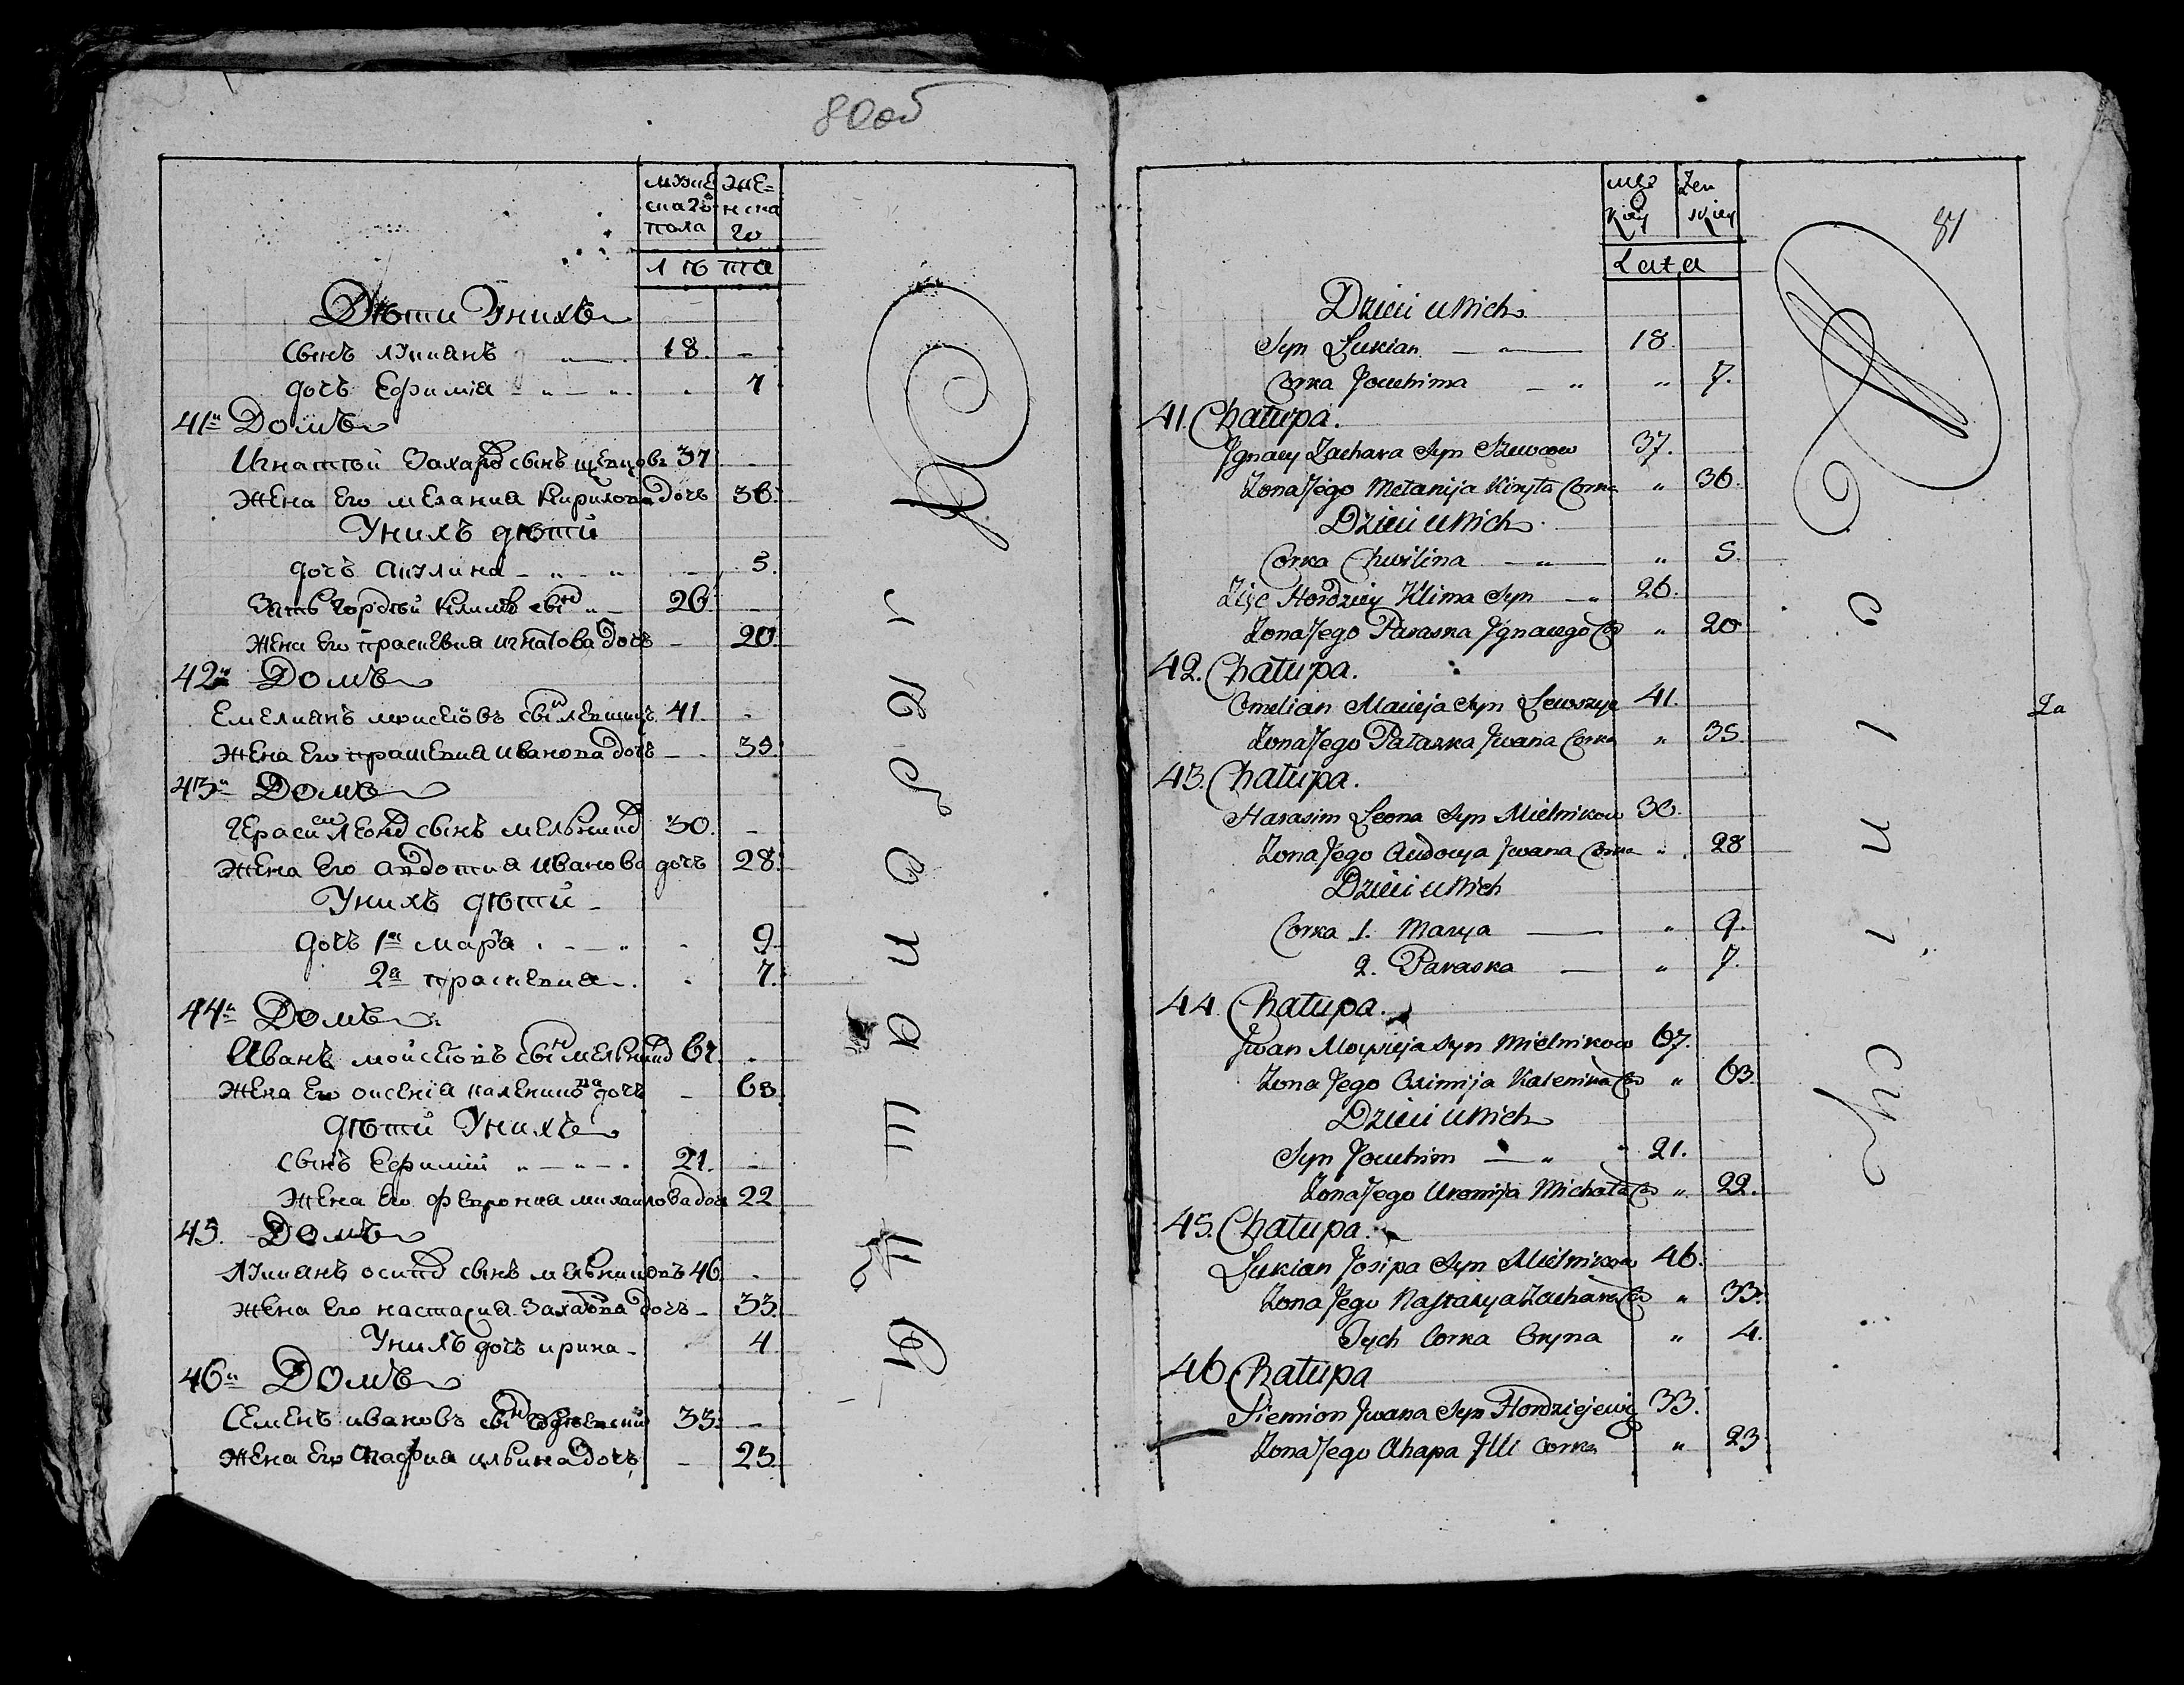 80об
мужеска го пола
женска го
лѣта
Дѣти Унихъ
сынъ лукианъ 18. -
дочъ Ефимиа - " - " . 7
41й Домъ
Игнатий Захаръ сынъ шевцовъ 37 -
жена Его мелания Кирилова дочъ 36.
Унихъ дѣти
дочъ акулина - " - " - 5.
зять гордѣй климъ сынъ " - 26 -
жена Его прасковиа игнатова дочъ - 20.
42й Домъ
Емелианъ моисеювъ сынъ 41. -
жена Его праскевиа иванова дочъ - - 35.
43й Домъ
Герасим леонъ сынъ мельникъ 30. -
жена Его авдотиа иванова дочъ 28.
Унихъ дѣти -
дочъ 1я мара . - " - 9
2я праскевиа - . . 7.
44й Домъ
Иванъ мойсеювъ сынъ мельникъ 67. -
жена Его оксениа каленикова дочъ - 63
дѣти Унихъ
сынъ Ефимий " - " - . 21. -
жена Его феврониа михаилова доч 22
45. Домъ
Лукианъ осипъ сынъ мельниковъ 46. .
жена Его настасиа Захарова дочъ - 33.
Унихъ дочъ ирина - 4
46й Домъ
Семенъ ивановъ сынъ 33. -
жена Его агафиа ильина дочъ - 23.
81
męzkiey
żenskiey
Lata
Dzieci u Nich
Syn Łukian 18.
Corka Jouchima - " " 7.
41. Chałupa.
Jgnacy Zachara Syn Szewcow 37.
Żona Jego Mełanija Kiryła Corka " 36.
Dzieci u Nich
Corka Chwilina - " - " 5
Zięc Hordziey Klima Syn - " 26.
Żona Jego Paraska Jgnacego Co " 20
42. Chałupa.
Omelian Macieja Syn Lewszyc 41.
Żona Jego Pałaszka Jwana Corka " 35.
43. Chałupa.
Harasim Leona Syn Mielnikow 30.
Żona Jego Audocya Jwana Corka " 28
Dzieci u Nich
Corka 1. Marya " 9.
2. Paraska - " 7.
44. Chałupa.
Jwan Moysieja Syn Mielnikow 67.
Żona Jego Oximija Kalenika Co " 63.
Dzieci u Nich
Syn Jouchim - " " 21.
Żona Jego Uremija Michała Co " 22.
45. Chałupa.
Łukian Josipa Syn Mielnikow 46.
Żona Jego Nastazya Zachara Co " 33.
Tych Corka Oryna " 4.
46 Chałupa
Siemion Jwana Syn Hordziejewicz 33.
Żona Jego Ahapa Jlli Corka " 23
Za